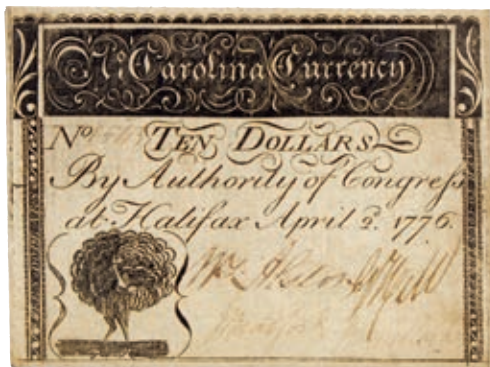 No. Carolina Currency
No
TEN DOLLARS
By Authority of Congress
at Halifax April 2. 1776.